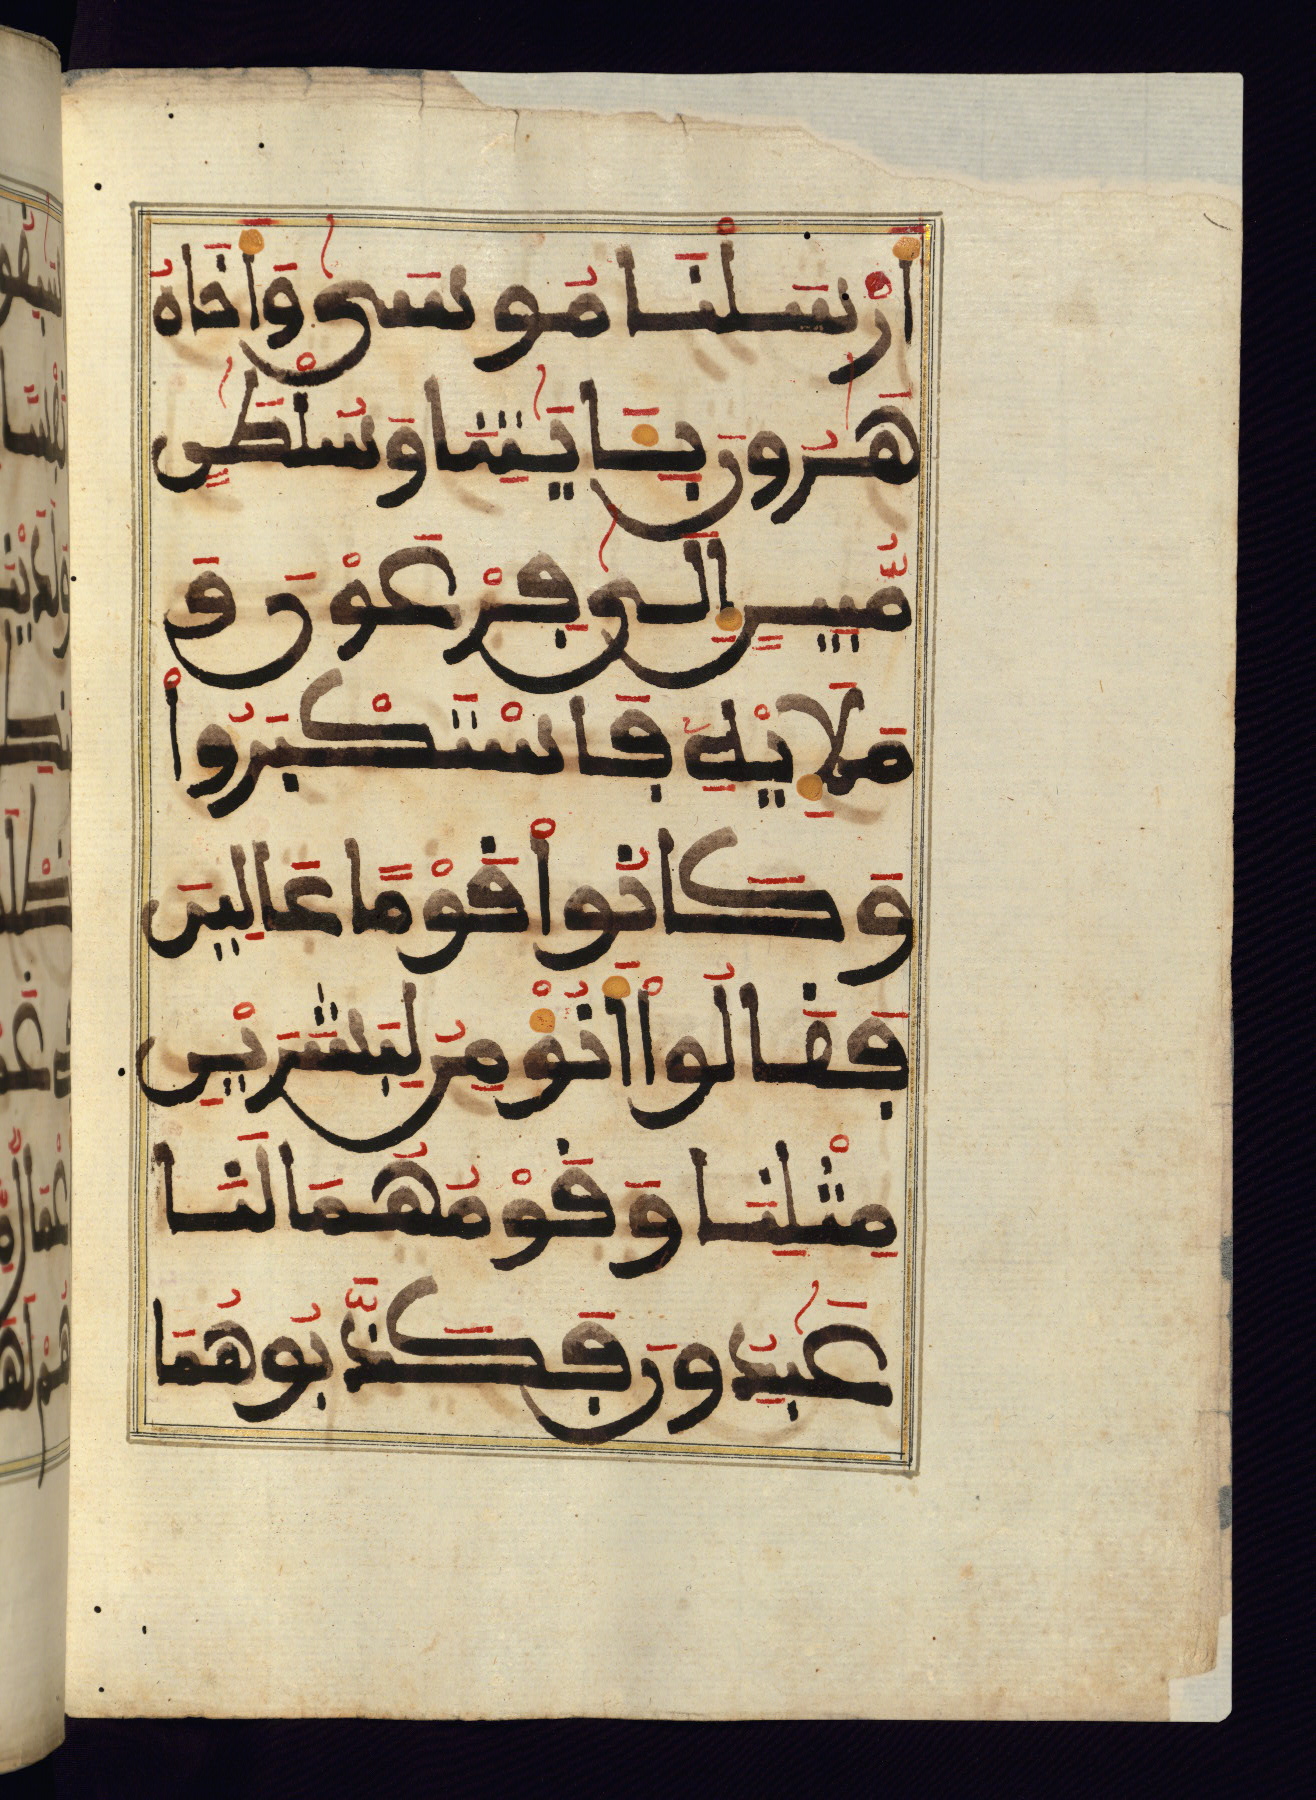 أَرْسَلْنَا مُوسَىٰ وَأَخَاهُ
هَٰرُونَ بِـَٔايَٰتِنَا وَسُلْطَٰنٍ
مُّبِينٍ إِلَىٰ فِرْعَوْنَ وَ
مَلَإِيْهِ فَاسْتَكْبَرُواْ
وَكَانُواْ قَوْمًا عَالِينَ
فَقَالُواْ أَنُؤْمِنُ لِبَشَرَيْنِ
مِثْلِنَا وَقَوْمُهُمَا لَنَا
عَٰبِدُونَ فَكَذَّبُوهُمَا